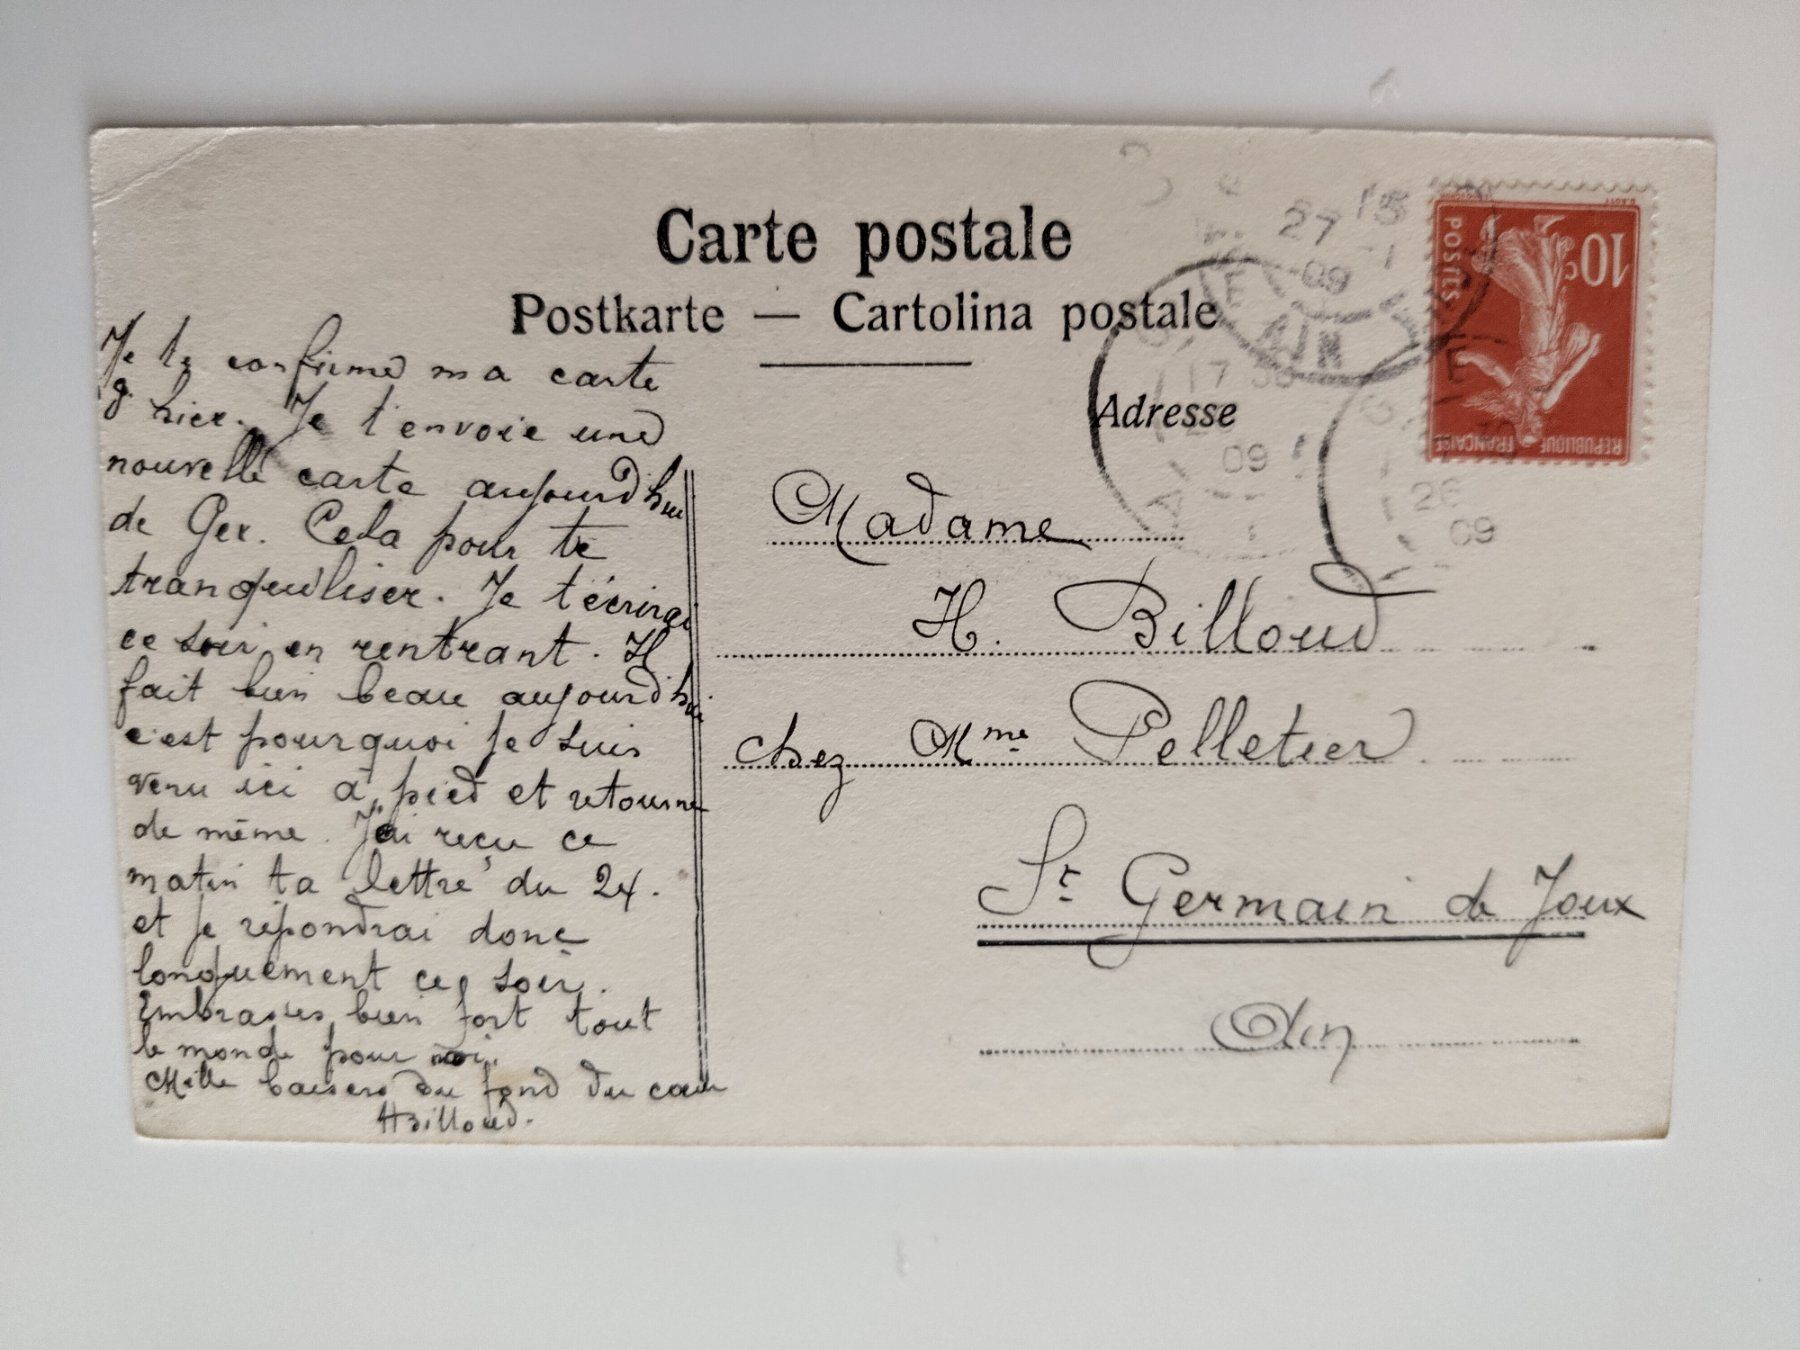 Carte postale
Postkarte — Cartolina postale
Adresse
Je te confirme ma carte
d'hier. Je t'envoie une
nouvelle carte aujourd'hui
de Gex. Cela pour te
tranquiliser. Je t'écrirai
ce soir en rentrant. Il
fait bien beau aujourd'hui
c'est pourquoi je suis
venu ici à pied et retourne
de même. J'ai reçu ce
matin ta lettre du 24.
et je répondrai donc
longuement ce soir.
Embrasses bien fort tout
le monde pour moi.
Mille baisers du fond du cœur
HBilloud.
Madame
H. Billoud
chez Mme Pelletier
St Germain de Joux
Ain
10c
POSTES
REPUBLIQUE FRANÇAISE
27
09
AIN
17
09
26
09